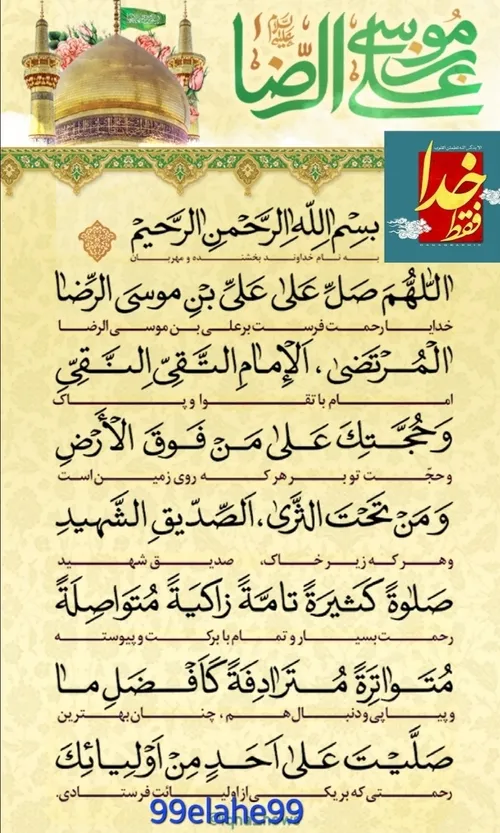 علی بن موسی الرضا
علیه السلام
خدا
فقط
بِسْمِ اللّٰهِ الرَّحْمٰنِ الرَّحیمْ
به نام خداوند بخشنده و مهربان
اَللّٰهُمَّ صَلِّ عَلیٰ عَلِیِّ بْنِ موسَی الرِّضَا
خدایا رحمت فرست بر علی بن موسی الرضا
الْمُرْتَضیٰ، اَلْإِمامِ التَّقِیِّ النَّقِیِّ
امام با تقوا و پاک
وَحُجَّتِكَ عَلیٰ مَنْ فَوقَ الْأَرْضِ
و حجّت تو بر هر که روی زمین است
وَ مَنْ تَحْتَ الثَّریٰ، اَلصِّدّیقِ الشَّهیدِ
و هر که زیر خاک، صدیق شهید
صَلوٰةً كَثیرَةً تامَّةً زاكیَةً مُتَواصِلَةً
رحمت بسیار و تمام با برکت و پیوسته
مُتَواتِرَةً مُتَرادِفَةً كَاَفْضَلِ ما
و پیاپی و دنبال هم، چنان بهترین
صَلَّیْتَ عَلیٰ اَحَدٍ مِنْ اَوْلِیائِكَ
رحمتی که بر یکی از اولیائت فرستادی.
99elahe99